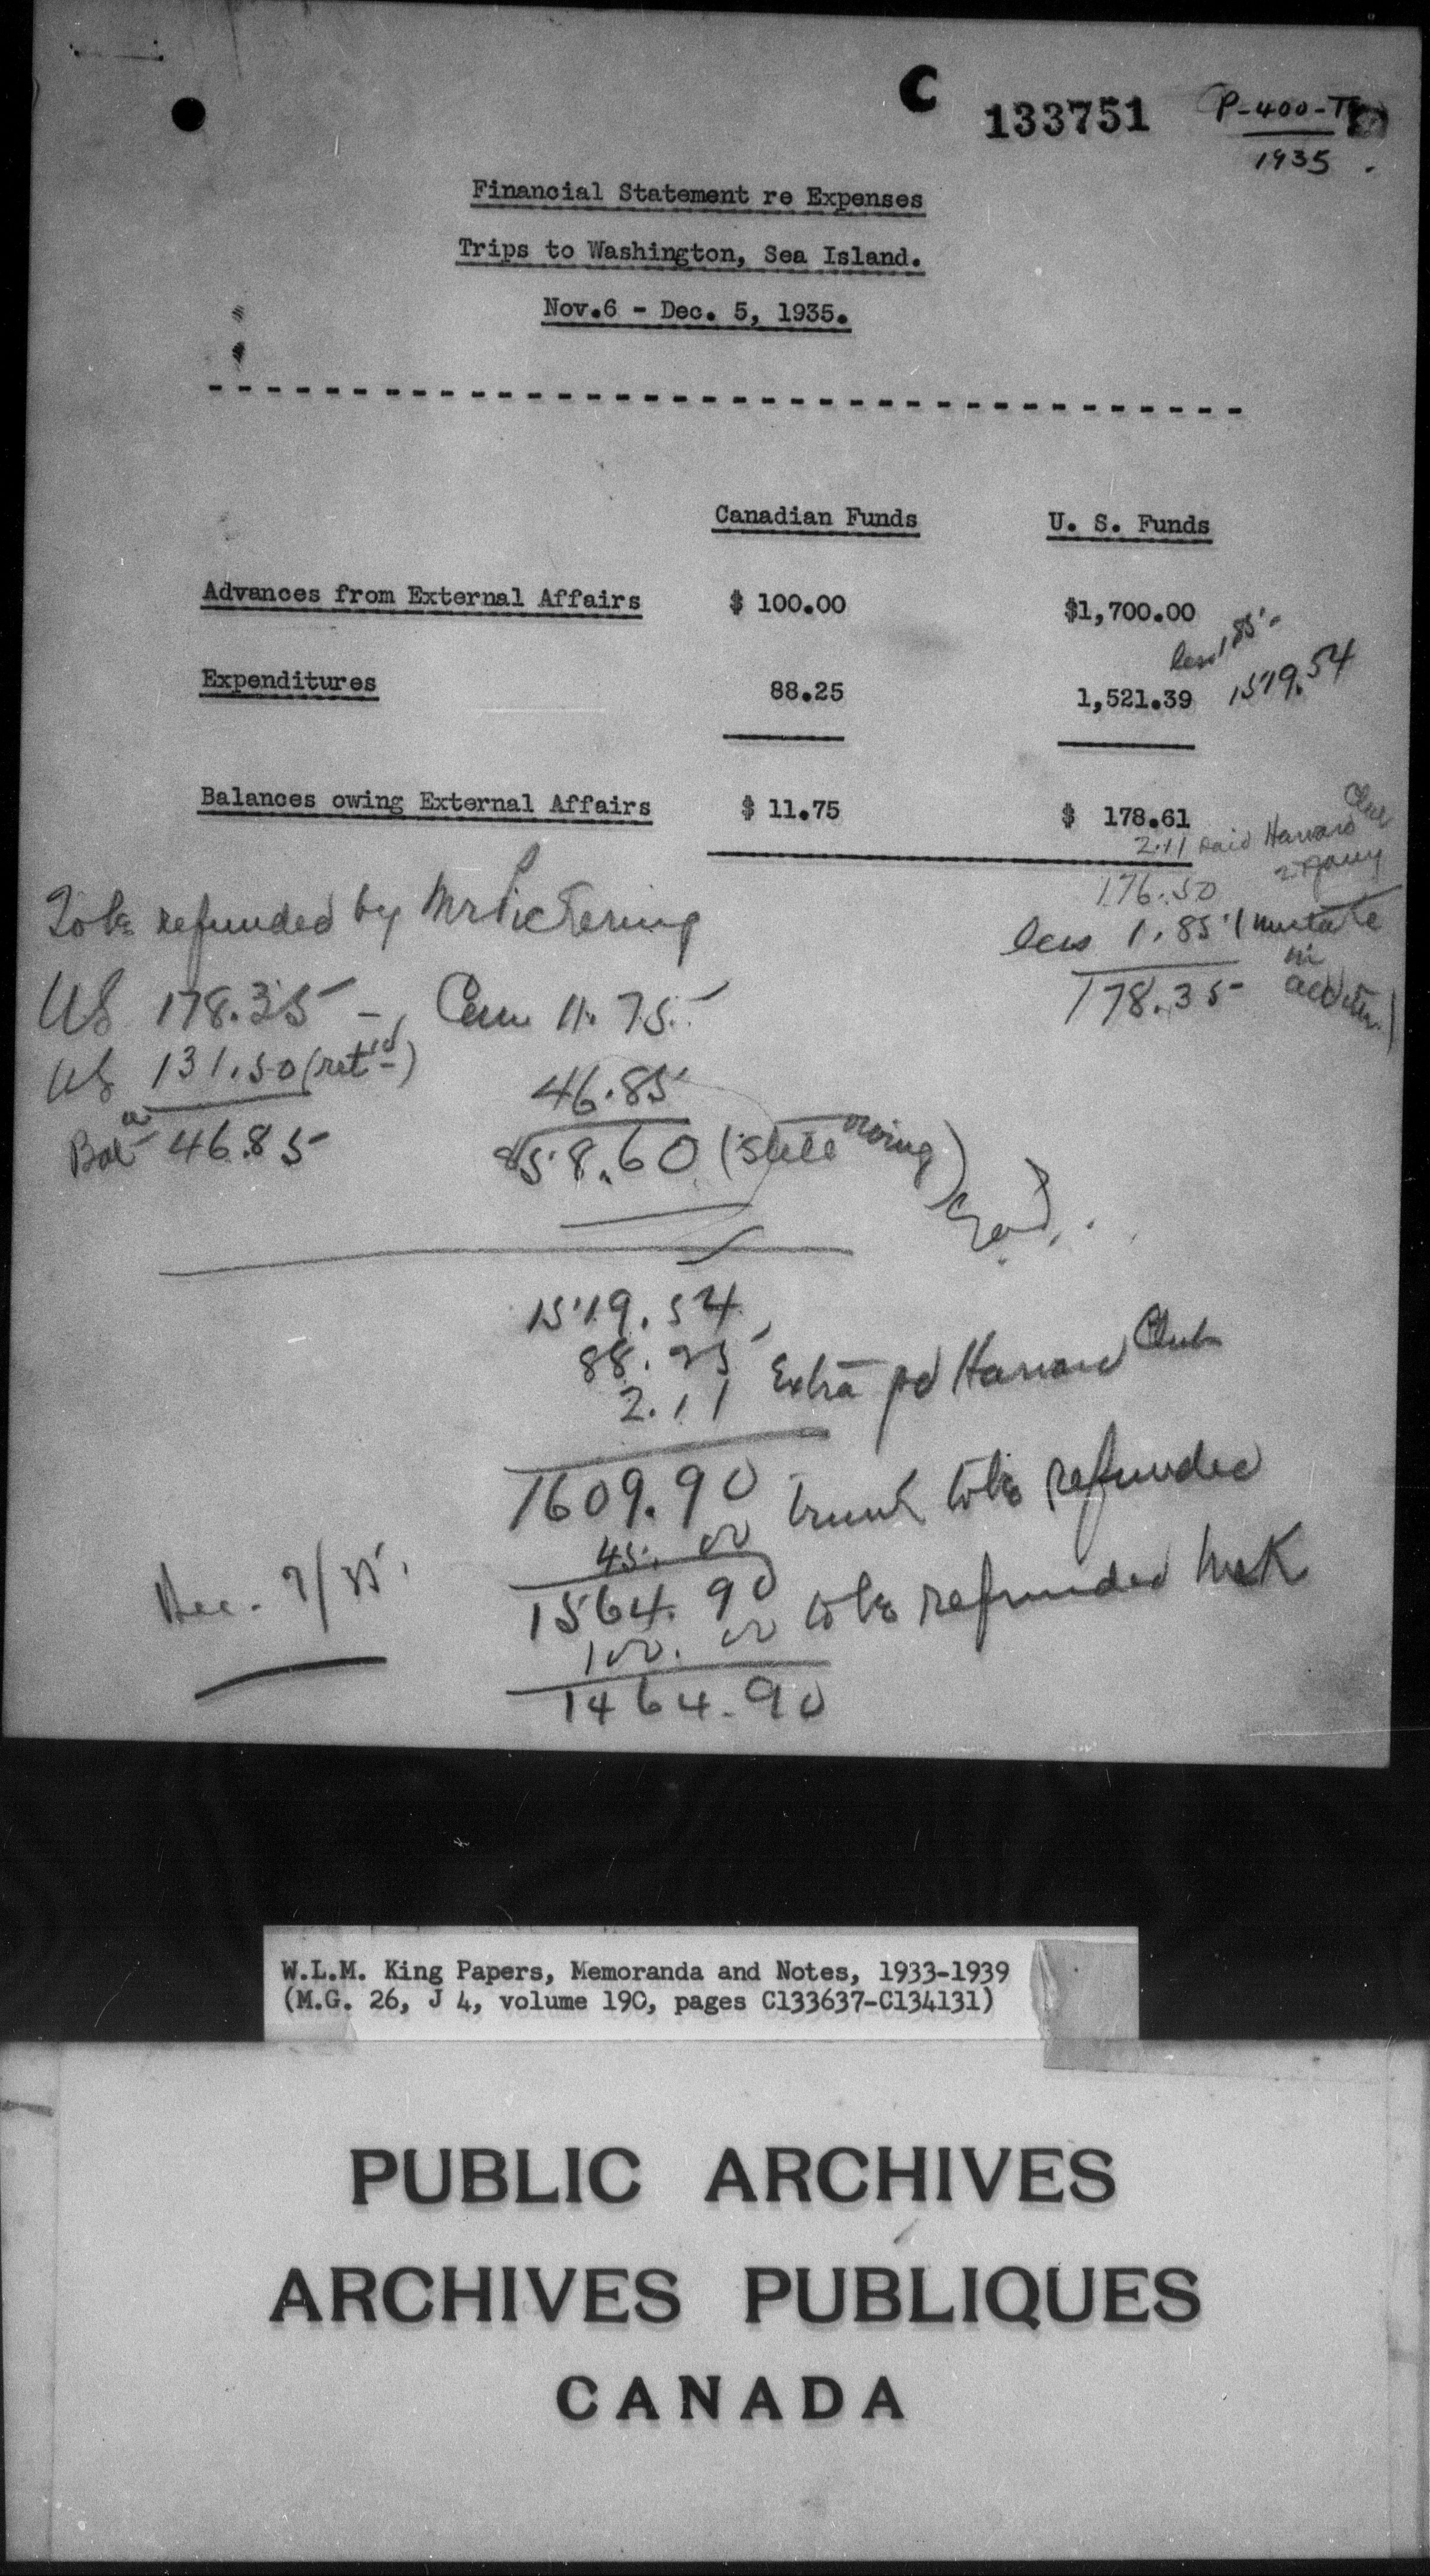 C 133751 P-400-T
1935
Financial Statement re Expenses
Trips to Washington, Sea Island.
Nov.6 - Dec. 5, 1935.
Canadian Funds U. S. Funds
Advances from External Affairs $ 100.00 $1,700.00
less 1.85
Expenditures 88.25 1,521.39 1519.54
Balances owing External Affairs $ 11.75 $ 178.61
2.11 paid Harvard Club
176.50
To be refunded by Mr Pickering
less 1.85 (mistake in addition)
178.35
US 178.35 - Can 11.75
US 131.50 (ret'd)
46.85
Bal 46.85
58.60 (still owing)
1519.54
88.25
2.11 Extra pd Harvard Club
1609.90
45.00 trunk to be refunded
1564.90
100.00 to be refunded
1464.90
Dec. 7/35.
W.L.M. King Papers, Memoranda and Notes, 1933-1939
(M.G. 26, J 4, volume 190, pages C133637-C134131)
PUBLIC ARCHIVES
ARCHIVES PUBLIQUES
CANADA